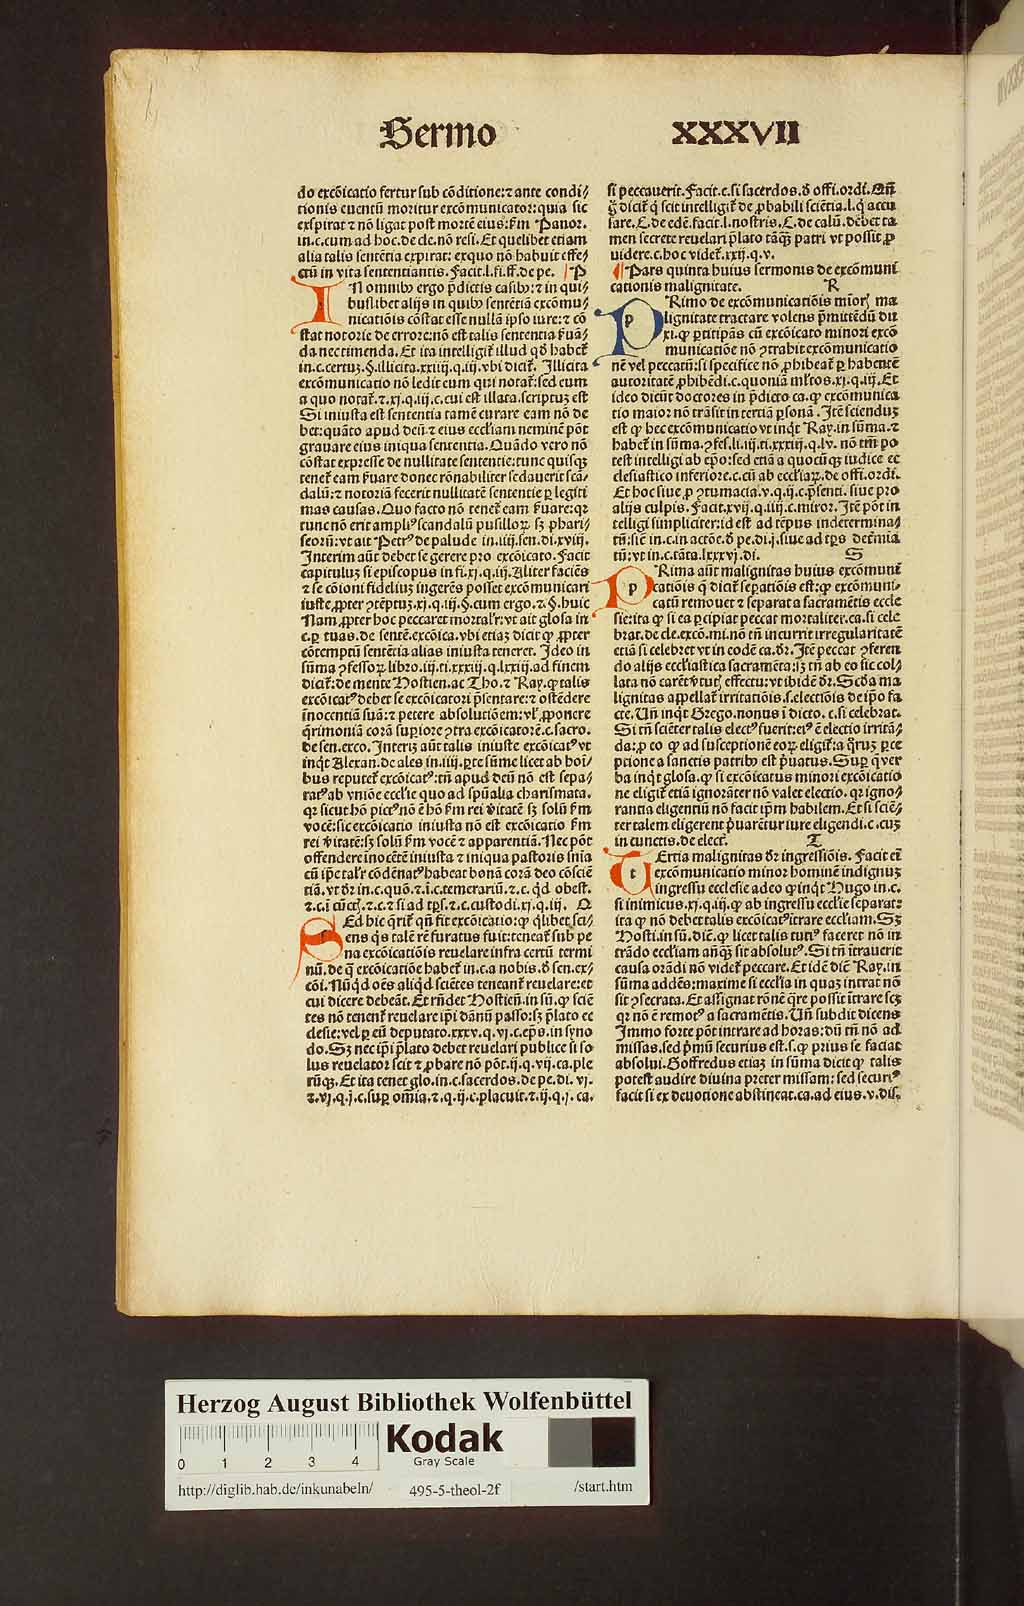 Sermo XXXVII
do excōicatio fertur sub cōditione: ⁊ ante condi/
tionis euentū moritur excōmunicator: quia sic
exspirat ⁊ nō ligat post mortē eius: ẜm Panor.
in.c.cum ad hoc.de cle.nō resi. Et quelibet etiam
alia talis sentētia expirat: exquo nō habuit effe/
ctū in vita sententiantis. Facit.l.fi.ff.de pe. P
IN omnibꝰ ergo p̄dictis casibꝰ: ⁊ in qui/
buslibet alijs in quibꝰ sentētiā excōmu/
nicatiōis cōstat esse nullā ipso iure: ⁊ cō
stat notorie de errore: nō est talis sententia ẜua/
da nec timenda. Et ita intelligit̄ illud qd̄ habet̄
in.c.certuꝫ.§.illicita.xxiiij.q.iij.vbi dicit̄. Illicita
excōmunicatio nō ledit eum qui notat̄: sed eum
a quo notat̄. ⁊.xj.q.iij.c.cui est illata.scriptuꝫ est
Si iniusta est sententia tamē curare eam nō de
bet: quāto apud deū ⁊ eius eccl'iam neminē pōt
grauare eius iniqua sententia. Quādo vero nō
cōstat expresse de nullitate sententie: tunc quisqꝫ
tenet̄ eam ẜuare donec rōnabiliter se dauerit scā/
dalū: ⁊ notoriā fecerit nullitatē sententie ꝑ legiti
mas causas. Quo facto nō tenet̄ eam ẜuare: qꝛ
tunc nō erit ampliꝰ scandalū pusilloꝝ sꝫ phari/
seorū: vt ait Petrꝰ de palude in.iiij.sen.di.xviij.
Interim aūt debet se gerere pro excōicato. Facit
capituluꝫ si episcopus in fi.xj.q.iij. Aliter faciēs
⁊ se cōioni fideliuꝫ ingerēs posset excōmunicari
iuste, ꝓpter ꝯtēptuꝫ.xj.q.iij.§.cum ergo. ⁊.§.huic
Nam ꝓpter hoc peccaret mortal'r: vt ait glosa in
c.ꝑ tuas. de sentē.excōica. vbi etiaꝫ dicit ꝙ ꝓpter
cōtemptū sentētia alias iniusta teneret. Ideo in
sūma ꝯfessoꝝ libro.iij.ti.xxxiij.q.lxiij.ad finem
dicit̄: de mente Hostien.ac Tho. ⁊ Ray. ꝙ talis
excōicatꝰ debet se excōicatori p̄sentare: ⁊ ostēdere
īnocentiā suā: ⁊ petere absolutiōem: vl' ꝓponere
q̄rimoniā corā supiore ꝯtra excōicatorē.c.sacro.
de sen.exco. Interiꝫ aūt talis iniuste excōicatꝰ vt
inqt Alexan.de ales in.iiij.ꝑte sūme licet ab hoī/
bus reputet̄ excōicatꝰ: tn̄ apud deū nō est sepa/
ratꝰ ab vniōe eccl'ie quo ad spūalia charismata.
qꝛ sicut hō pictꝰ nō ē hō ẜm rei v̄itatē sꝫ solū ẜm
vocē: sic excōicatio iniusta nō est excōicatio ẜm
rei v̄itatē: sꝫ solū ẜm vocē ⁊ apparentiā. Nec pōt
offendere inocētē iniusta ⁊ iniqua pastoris snīa
cū ip̄e tal'r cōdēnatꝰ habeat bonā corā deo cōsciē
tiā. vt dr̄ in.c.quō. ⁊.ī.c.temerariū. ⁊.c.qd̄ obest.
⁊.c.ī cūctꝭ. ⁊.c. ⁊ si ad tp̄s. ⁊.c.custodi.xj.q.iij. Q
SEd hic q̄rit̄ qn̄ fit excōicatio: ꝙ qlibet sci/
ens qs talē rē furatus fuit: teneat̄ sub pe
na excōicatiōis reuelare infra certū termi
nū. de q̄ excōicatiōe habet̄ in.c.a nobis.d̄ sen.ex/
cōi. Nūqd oēs aliqd sciētes teneant̄ reuelare: et
cui dicere debeāt. Et rn̄det Hostieñ.in sū. ꝙ sciē
tes nō tenent̄ reuelare ip̄i dānū passo: sꝫ p̄lato ec
clesie: vel ꝑ eū deputato.xxxv.q.vj.c.ep̄s.in syno
do. Sꝫ nec ip̄i p̄lato debet reuelari publice si so
lus reuelator scit ⁊ ꝓbare nō pōt.ij.q.vij.ca.ple
rūqꝫ. Et ita tenet glo.in.c.sacerdos.de pe.di.vj.
⁊.vj.q.j.c.suꝑ om̄ia. ⁊.q.ij.c.placuit. ⁊.ij.q.j.ca.
si peccauerit. Facit.c.si sacerdos.d̄ offi.ordi. Qn̄
g̊ dicit̄ ꝙ scit intelligit̄ de ꝓbabili sciētia.l.q̄ accu
sare. C. de edē.facit.l.nostris. C. de calū. debet ta
men secrete reuelari p̄lato tāqꝫ patri vt possit ꝓ
uidere.c.hoc videt̄.xxij.q.v.
¶ Pars quinta huius sermonis de excōmuni
cationis malignitate. R
PRimo de excōmunicatiōis mīorꝭ ma
lignitate tractare volens p̄mittēdū du
xi. ꝙ ꝑticipās cū excōicato minori excō
municatiōe nō ꝯtrahit excōmunicatio
nē vel peccatū: si specifice nō ꝓhibeat̄ ꝑ habentē
autoritatē ꝓhibēdi.c.quoniā ml'tos.xj.q.iij. Et
ideo dicūt doctores in p̄dicto ca. ꝙ excōmunica
tio maior nō trāsit in tertiā ꝑsonā. Itē sciendus
est ꝙ hec excōmunicatio vt inqt Ray. in sūma. ⁊
habet̄ in sūma.ꝯfes.li.iij.ti.xxxiij.q.lv. nō tm̄ po
test intelligi ab ep̄o: sed etiā a quocūqꝫ iudice ec
clesiastico inferiore.c.cū ab eccl'iaꝝ.de offi.ordi.
Et hoc siue, ꝓ ꝯtumacia.v.q.ij.c.p̄senti. siue pro
alijs culpis. Facit.xvij.q.iiij.c.miror. Itē pōt in
telligi simpliciter: id est ad tēpus indetermina/
tū: sicē in.c.in actōe.d̄ pe.di.j.siue ad tp̄s detm̄ia
tū: vt in.c.tāta.lxxxvj.di. S
PRima aūt malignitas huius excōmuni
catiōis q̄ dicit̄ sepatiōis est: ꝙ excōmuni/
catū remouet ⁊ separat a sacramētis eccle
sie: ita ꝙ si ea ꝑcipiat peccat mortaliter.ca.si cele
brat.de cle.excō.mi.nō tn̄ incurrit irregularitatē
etiā si celebret vt in eodē ca.dr̄. Itē peccat ꝯferen
do alijs eccl'iastica sacramēta: sꝫ tn̄ ab eo sic col/
lata nō carēt v̄tutꝭ effectu: vt ibidē dr̄. Scd̄a ma
lignitas appellat̄ irritatiōis. s. electiōis de ip̄o fa
cte. Un̄ inqt Grego. nonus ī dicto.c.si celebrat.
Si tn̄ sciēter talis electꝰ fuerit: eiꝰ ē electio irritā/
da: ꝓ eo ꝙ ad susceptionē eoꝝ eligit̄: a qr̄uꝫ ꝑce
ptione a sanctis patribꝰ est p̄uatus. Suꝑ q̄ ver
ba inqt glosa. ꝙ si excōicatus minori excōicatio
ne eligit̄ etiā ignorāter nō valet electio. qꝛ igno/
rantia eligentiū nō facit ip̄m habilem. Et si sciē/
ter talem eligerent p̄uarētur iure eligendi.c.cuꝫ
in cunctis.de elect̄. T
TErtia malignitas dr̄ ingressiōis. Facit ei
excōmunicatio minor hominē indignuꝫ
ingressu ecclesie adeo ꝙ inqt Hugo in.c.
si inimicus.xj.q.iij. ꝙ ab ingressu eccl'ie separat̄:
ita ꝙ nō debet talis excōicatꝰ ītrare eccl'iam. Sꝫ
Hosti.in sū.dic̄. ꝙ licet talis tutiꝰ faceret nō in
trādo eccl'iam anqꝫ sit absolutꝰ. Si tn̄ ītrauerit
causa orādi nō videt̄ peccare. Et idē dic̄ Ray. in
sūma addēs: maxime si eccl'ia in quaꝫ intrat nō
sit ꝯsecrata. Et assignat rōnē q̄re possit ītrare scꝫ
qꝛ nō ē remotꝰ a sacramētis. Un̄ subdit dicens
Immo forte pōt intrare ad horas: dū tn̄ nō ad
missas. sed p̄mū securius est. s. ꝙ prius se faciat
absolui. Goffredus etiaꝫ in sūma dicit ꝙ talis
potest audire diuina preter missam: sed securiꝰ
facit si ex deuotione abstineat.ca.ad eius.v.dis.
Herzog August Bibliothek Wolfenbüttel
0 1 2 3 4
Kodak
Gray Scale
http://diglib.hab.de/inkunabeln/ 495-5-theol-2f /start.htm